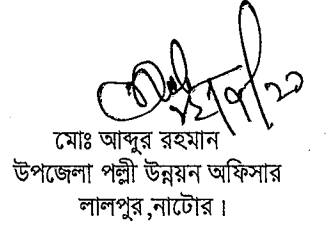 মোঃ আব্দুর রহমান
উপজেলা পল্লী উন্নয়ন অফিসার
লালপুর,নাটোর।